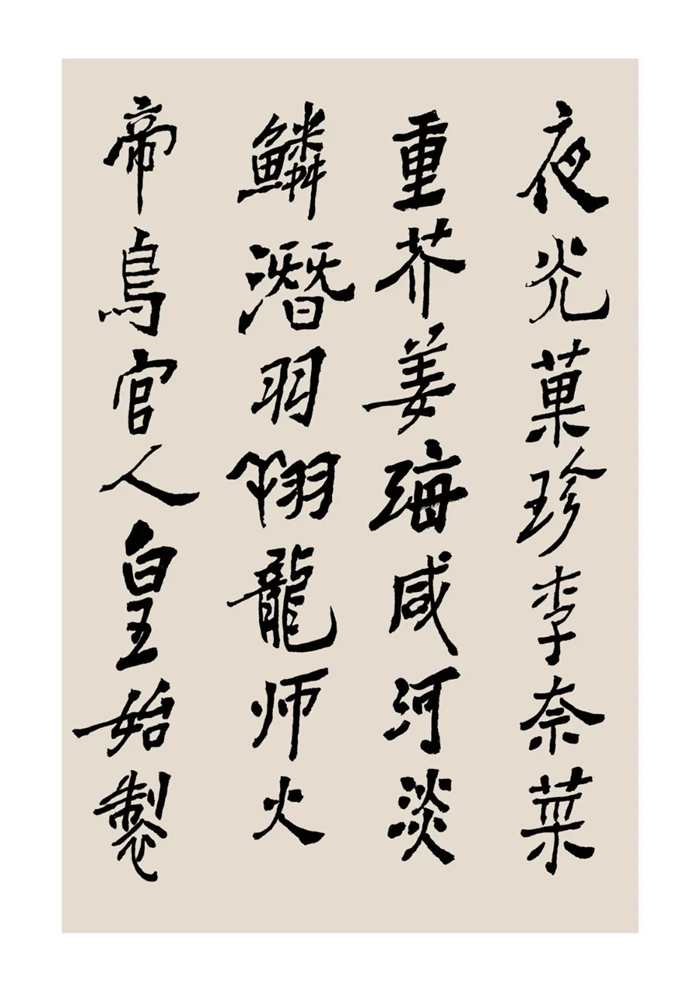 夜光菓珍李奈菜
重芥姜海咸河淡
鳞潜羽翔龍师火
帝鳥官人皇始製